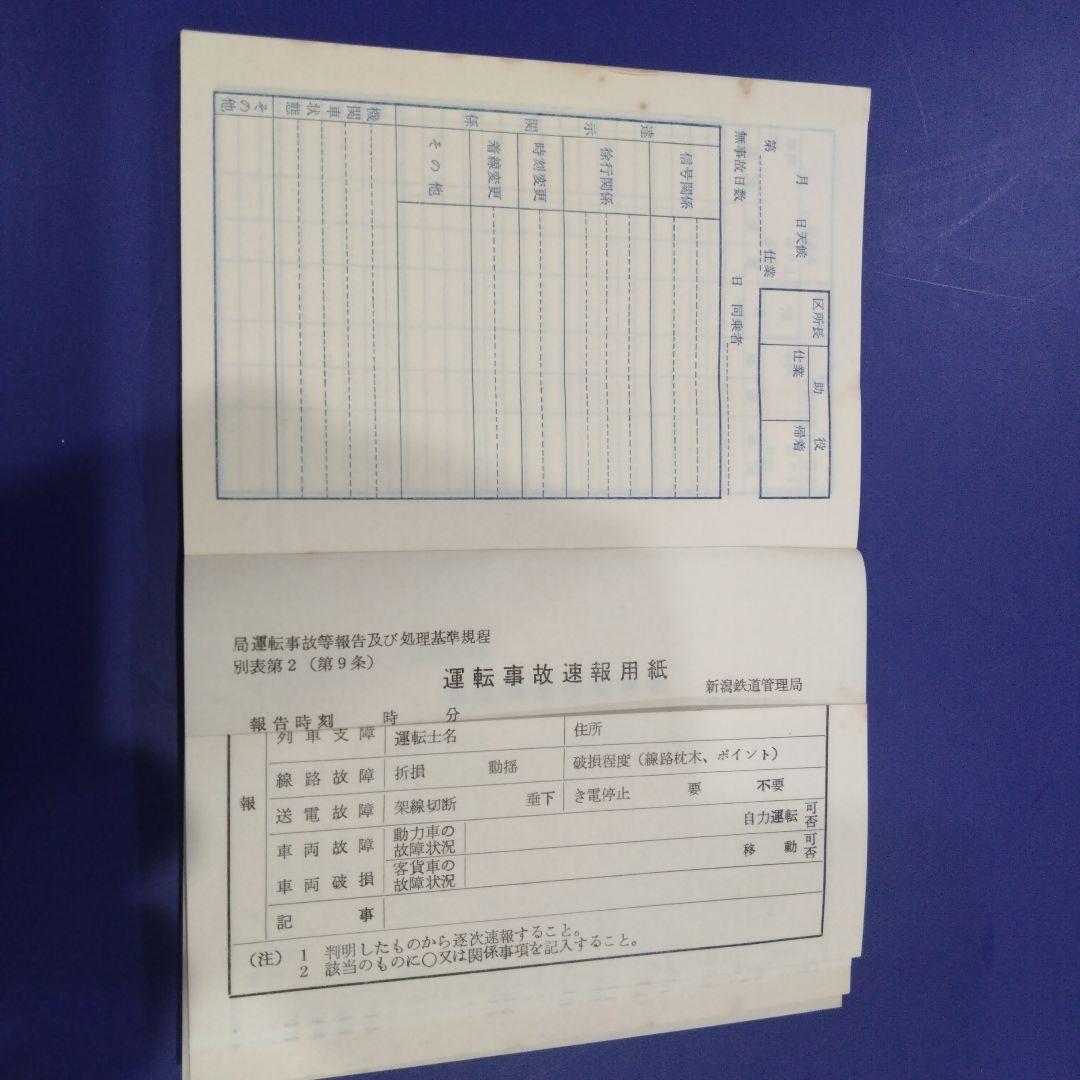 月 日 天候
第 仕業
無事故日数 日 同乗者
区所長 助役
仕業 帰着
達示関係
信号関係
徐行関係
時刻変更
着線変更
その他
機関車状態
その他
局運転事故等報告及び処理基準規程
別表第2（第9条）
運転事故速報用紙
新潟鉄道管理局
報告時刻 時 分
報
列車支障 運転士名 住所
線路故障 折損 動揺 破損程度（線路枕木、ポイント）
送電故障 架線切断 垂下 き電停止 要 不要
車両故障 動力車の故障状況 自力運転 可否
車両破損 客貨車の故障状況 移動 可否
記事
（注） 1 判明したものから逐次速報すること。
2 該当のものに○又は関係事項を記入すること。